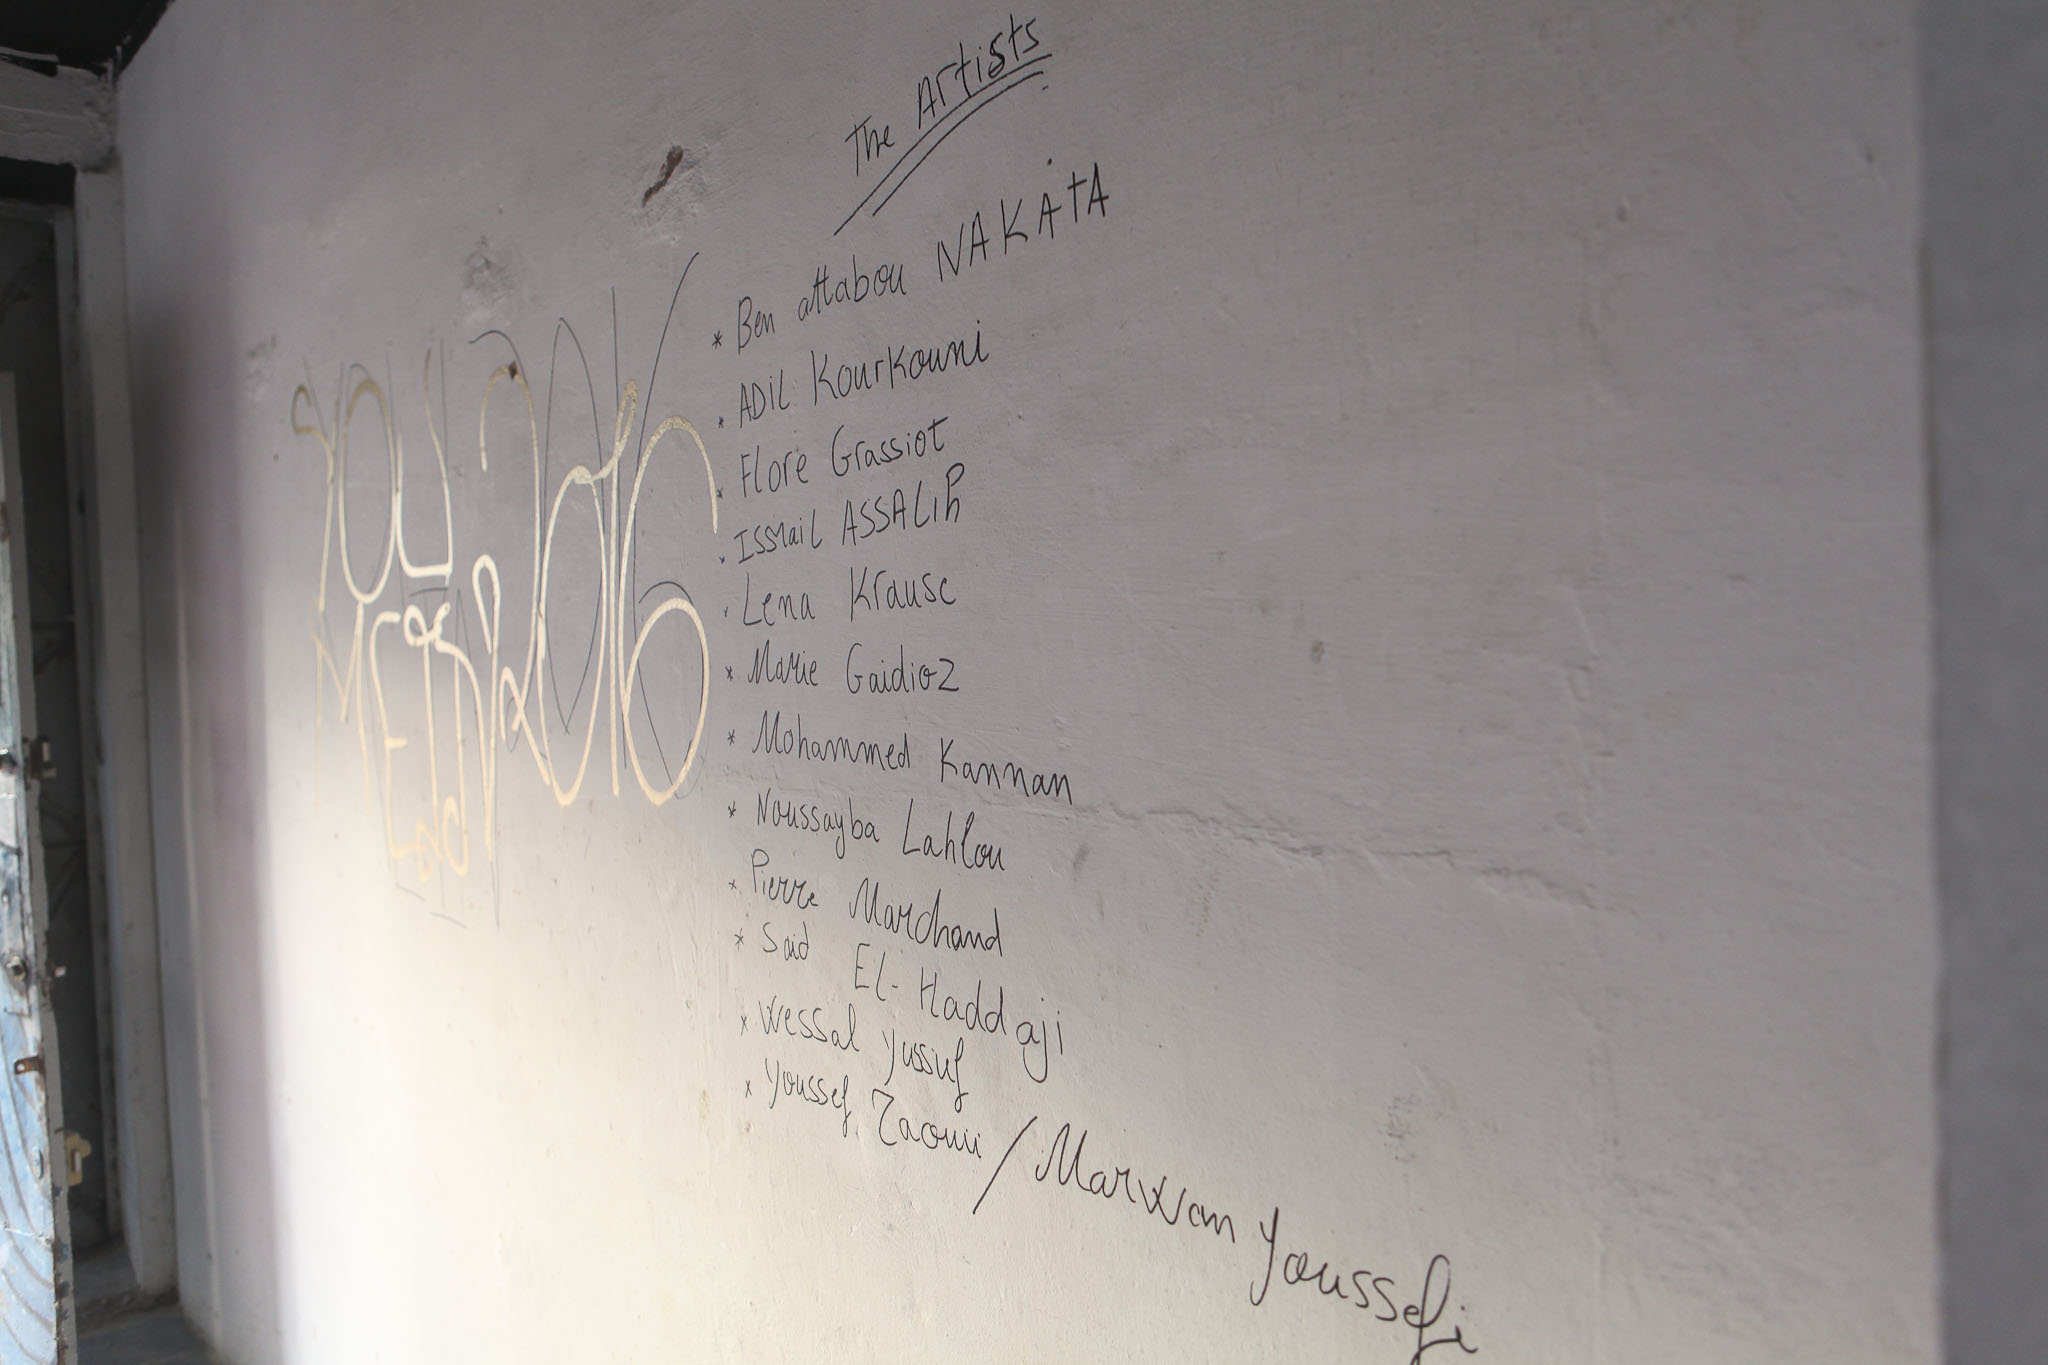 YOU 2016
MEDINA
The Artists
* Ben attabou NAKATA
* ADIL Kourkouni
* Flore Grassiot
* ISMail ASSALIH
* Lena Krause
* Marie Gaidioz
* Mohammed Kannan
* Noussayba Lahlou
* Pierre Marchand
* Said EL-Haddaji
* Wessal Yussuf
* Youssef Zaoui / Marwan Youssefi